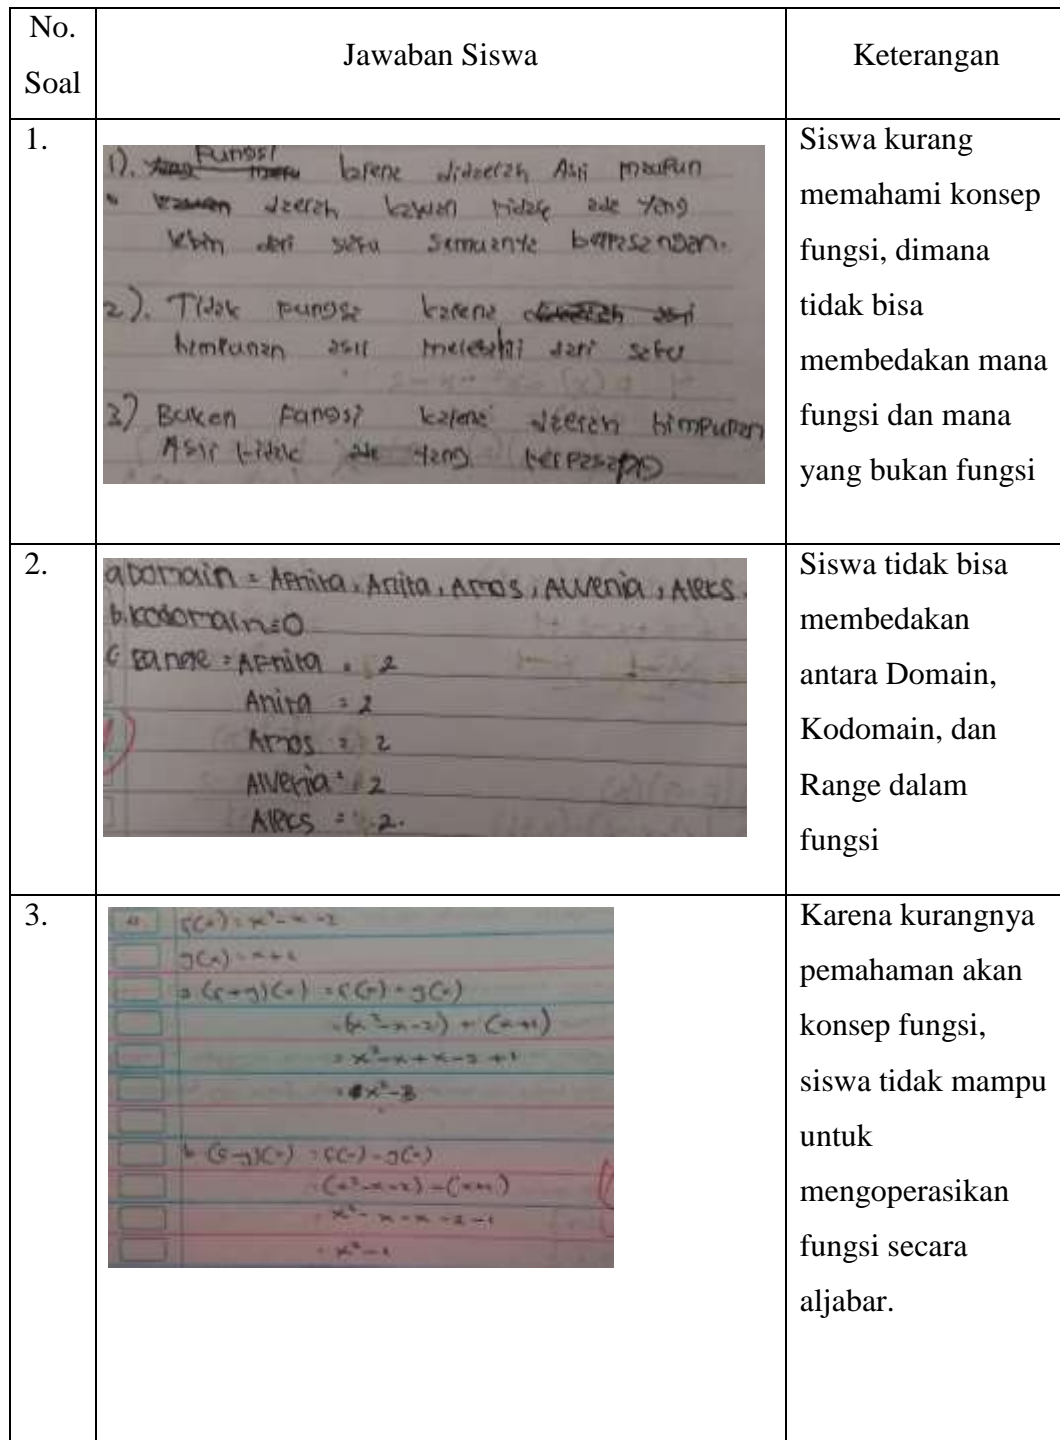 No.
Soal
Jawaban Siswa
Keterangan
1.
1). Fungsi karene didaerah Asli maupun
daerah kawan tidak ade yang
lebih dari satu semuanye berpasangan.
2). Tidak karene
himpunan asli dari satu
3) Buken karene daerah himpunan
Asli tidak ade yang
Siswa kurang
memahami konsep
fungsi, dimana
tidak bisa
membedakan mana
fungsi dan mana
yang bukan fungsi
2.
a Domain = Afnita, Anita, Amos, Alvenia, Aleks.
b. kodomain = 0
c Range = Afnita = 2
Anita = 2
Amos = 2
Alvenia = 2
Aleks = 2.
Siswa tidak bisa
membedakan
antara Domain,
Kodomain, dan
Range dalam
fungsi
3.
f(x) = x² - x - 2
g(x) = x +
a (f+g)(x) = f(x) + g(x)
= (x² - x - 2) + (x+1)
= x² - x + x - 2 + 1
= x² - 3
b (f-g)(x) = f(x) - g(x)
= (x² - x - 2) - (x+1)
= x² - x - x - 2 - 1
Karena kurangnya
pemahaman akan
konsep fungsi,
siswa tidak mampu
untuk
mengoperasikan
fungsi secara
aljabar.